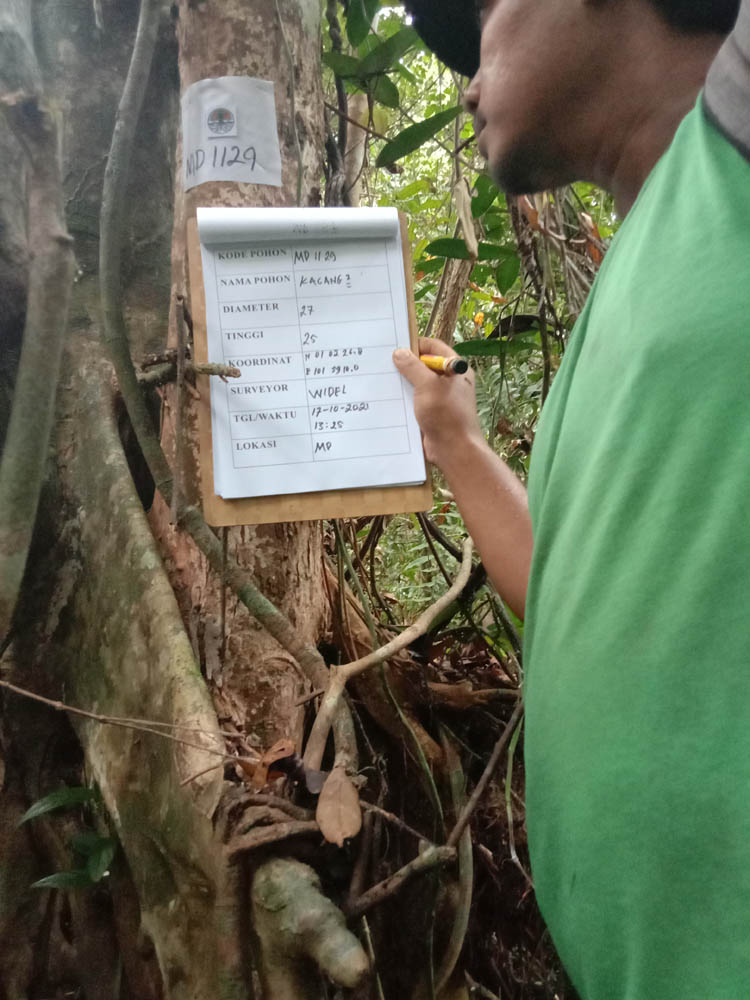 MD 1129
KODE POHON MD 1129
NAMA POHON KACANG 2
DIAMETER 27
TINGGI 25
KOORDINAT N 01 02 26.8
E 101 59 10.0
SURVEYOR WIDEL
TGL/WAKTU 17-10-2020
13:25
LOKASI MD